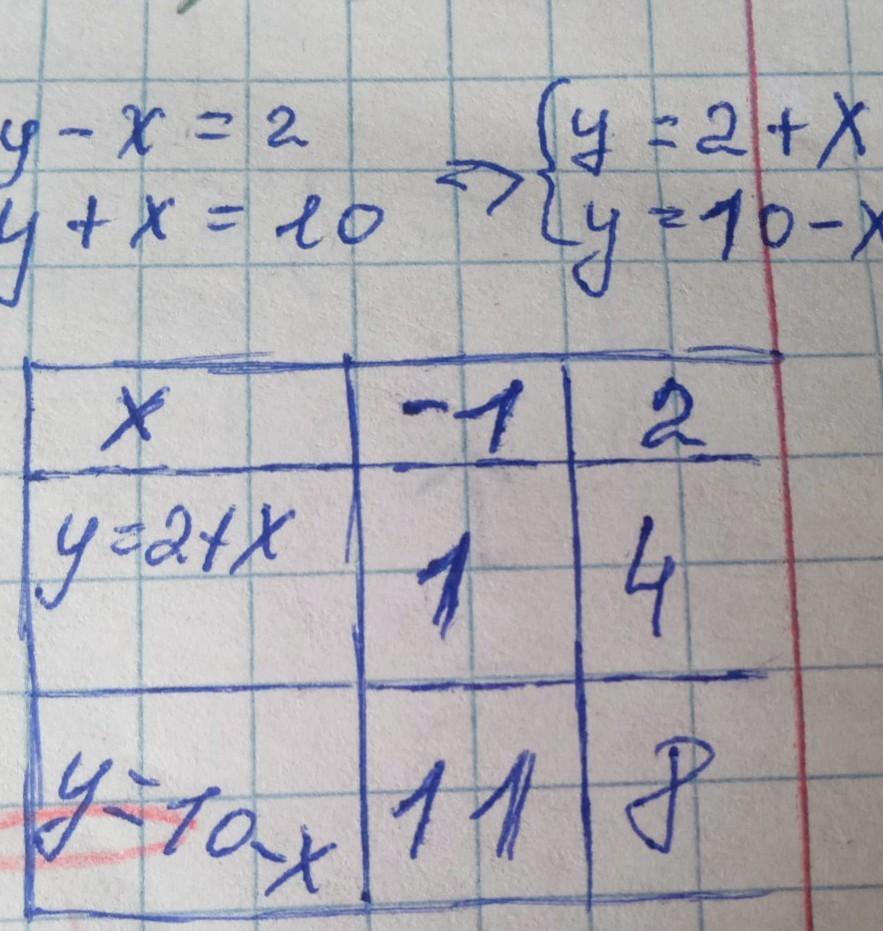 y - x = 2
y + x = 10
⇒
{ y = 2 + x
y = 10 - x
x -1 2
y = 2 + x 1 4
y = 10 - x 11 8